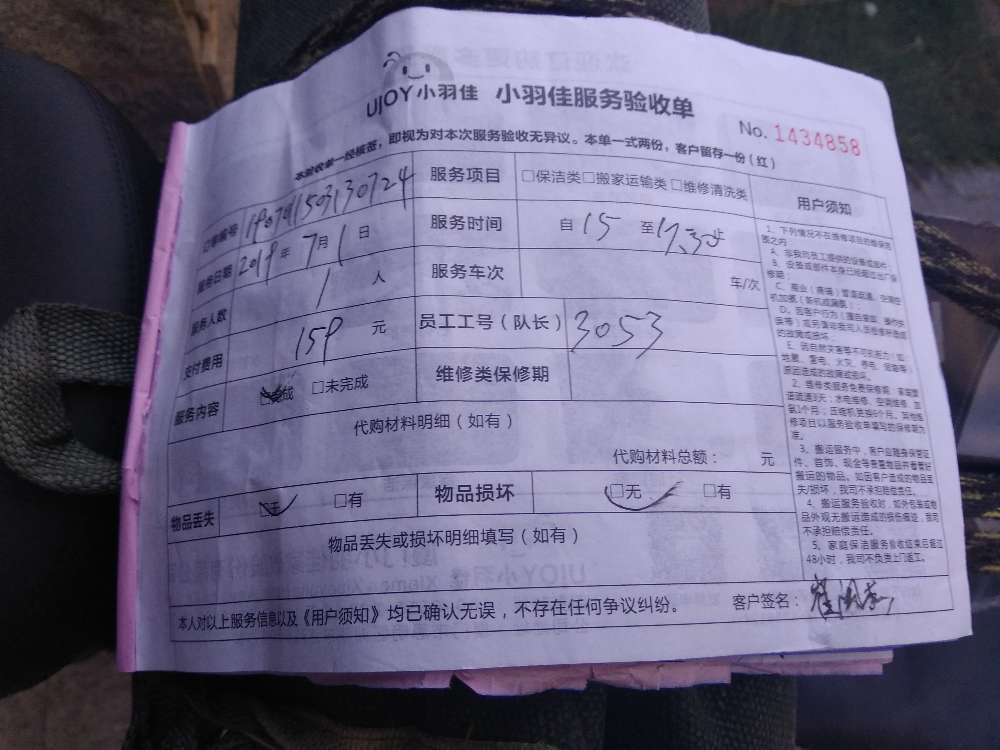 UJOY小羽佳 小羽佳服务验收单
No. 1434858
本验收单一经核签，即视为对本次服务验收无异议。本单一式两份，客户留存一份（红）
订单编号 服务项目 □保洁类□搬家运输类□维修清洗类 用户须知
服务日期 2019年7月1日 服务时间 自15至17:30止
服务人数 1人 服务车次 车/次
支付费用 159元 员工工号（队长） 3053
服务内容 □完成 □未完成 维修类保修期
代购材料明细（如有）
代购材料总额： 元
物品丢失 □无 □有 物品损坏 □无 □有
物品丢失或损坏明细填写（如有）
本人对以上服务信息以及《用户须知》均已确认无误，不存在任何争议纠纷。 客户签名：
1、下列情况不在维修项目的维保范
围之内
A、非我司员工提供的设备或部件；
B、设备或部件本身已经超过出厂保
修期；
2、维修类服务免费保修期：家庭管
道疏通3天；水电维修、空调维修、加
氨1个月；压缩机更换6个月。其他维
修项目以服务验收单填写的保修期为
准。
3、搬运服务中，客户应随身保管证
件、首饰、现金等贵重物品并看管好
搬运的物品。如因客户造成的物品丢
失/损坏，我司不承担赔偿责任。
4、搬运服务验收时，如外包装或物
品外观无搬运造成的损伤痕迹，我司
不承担赔偿责任。
5、家庭保洁服务验收结束后超过
48小时，我司不负责上门返工。